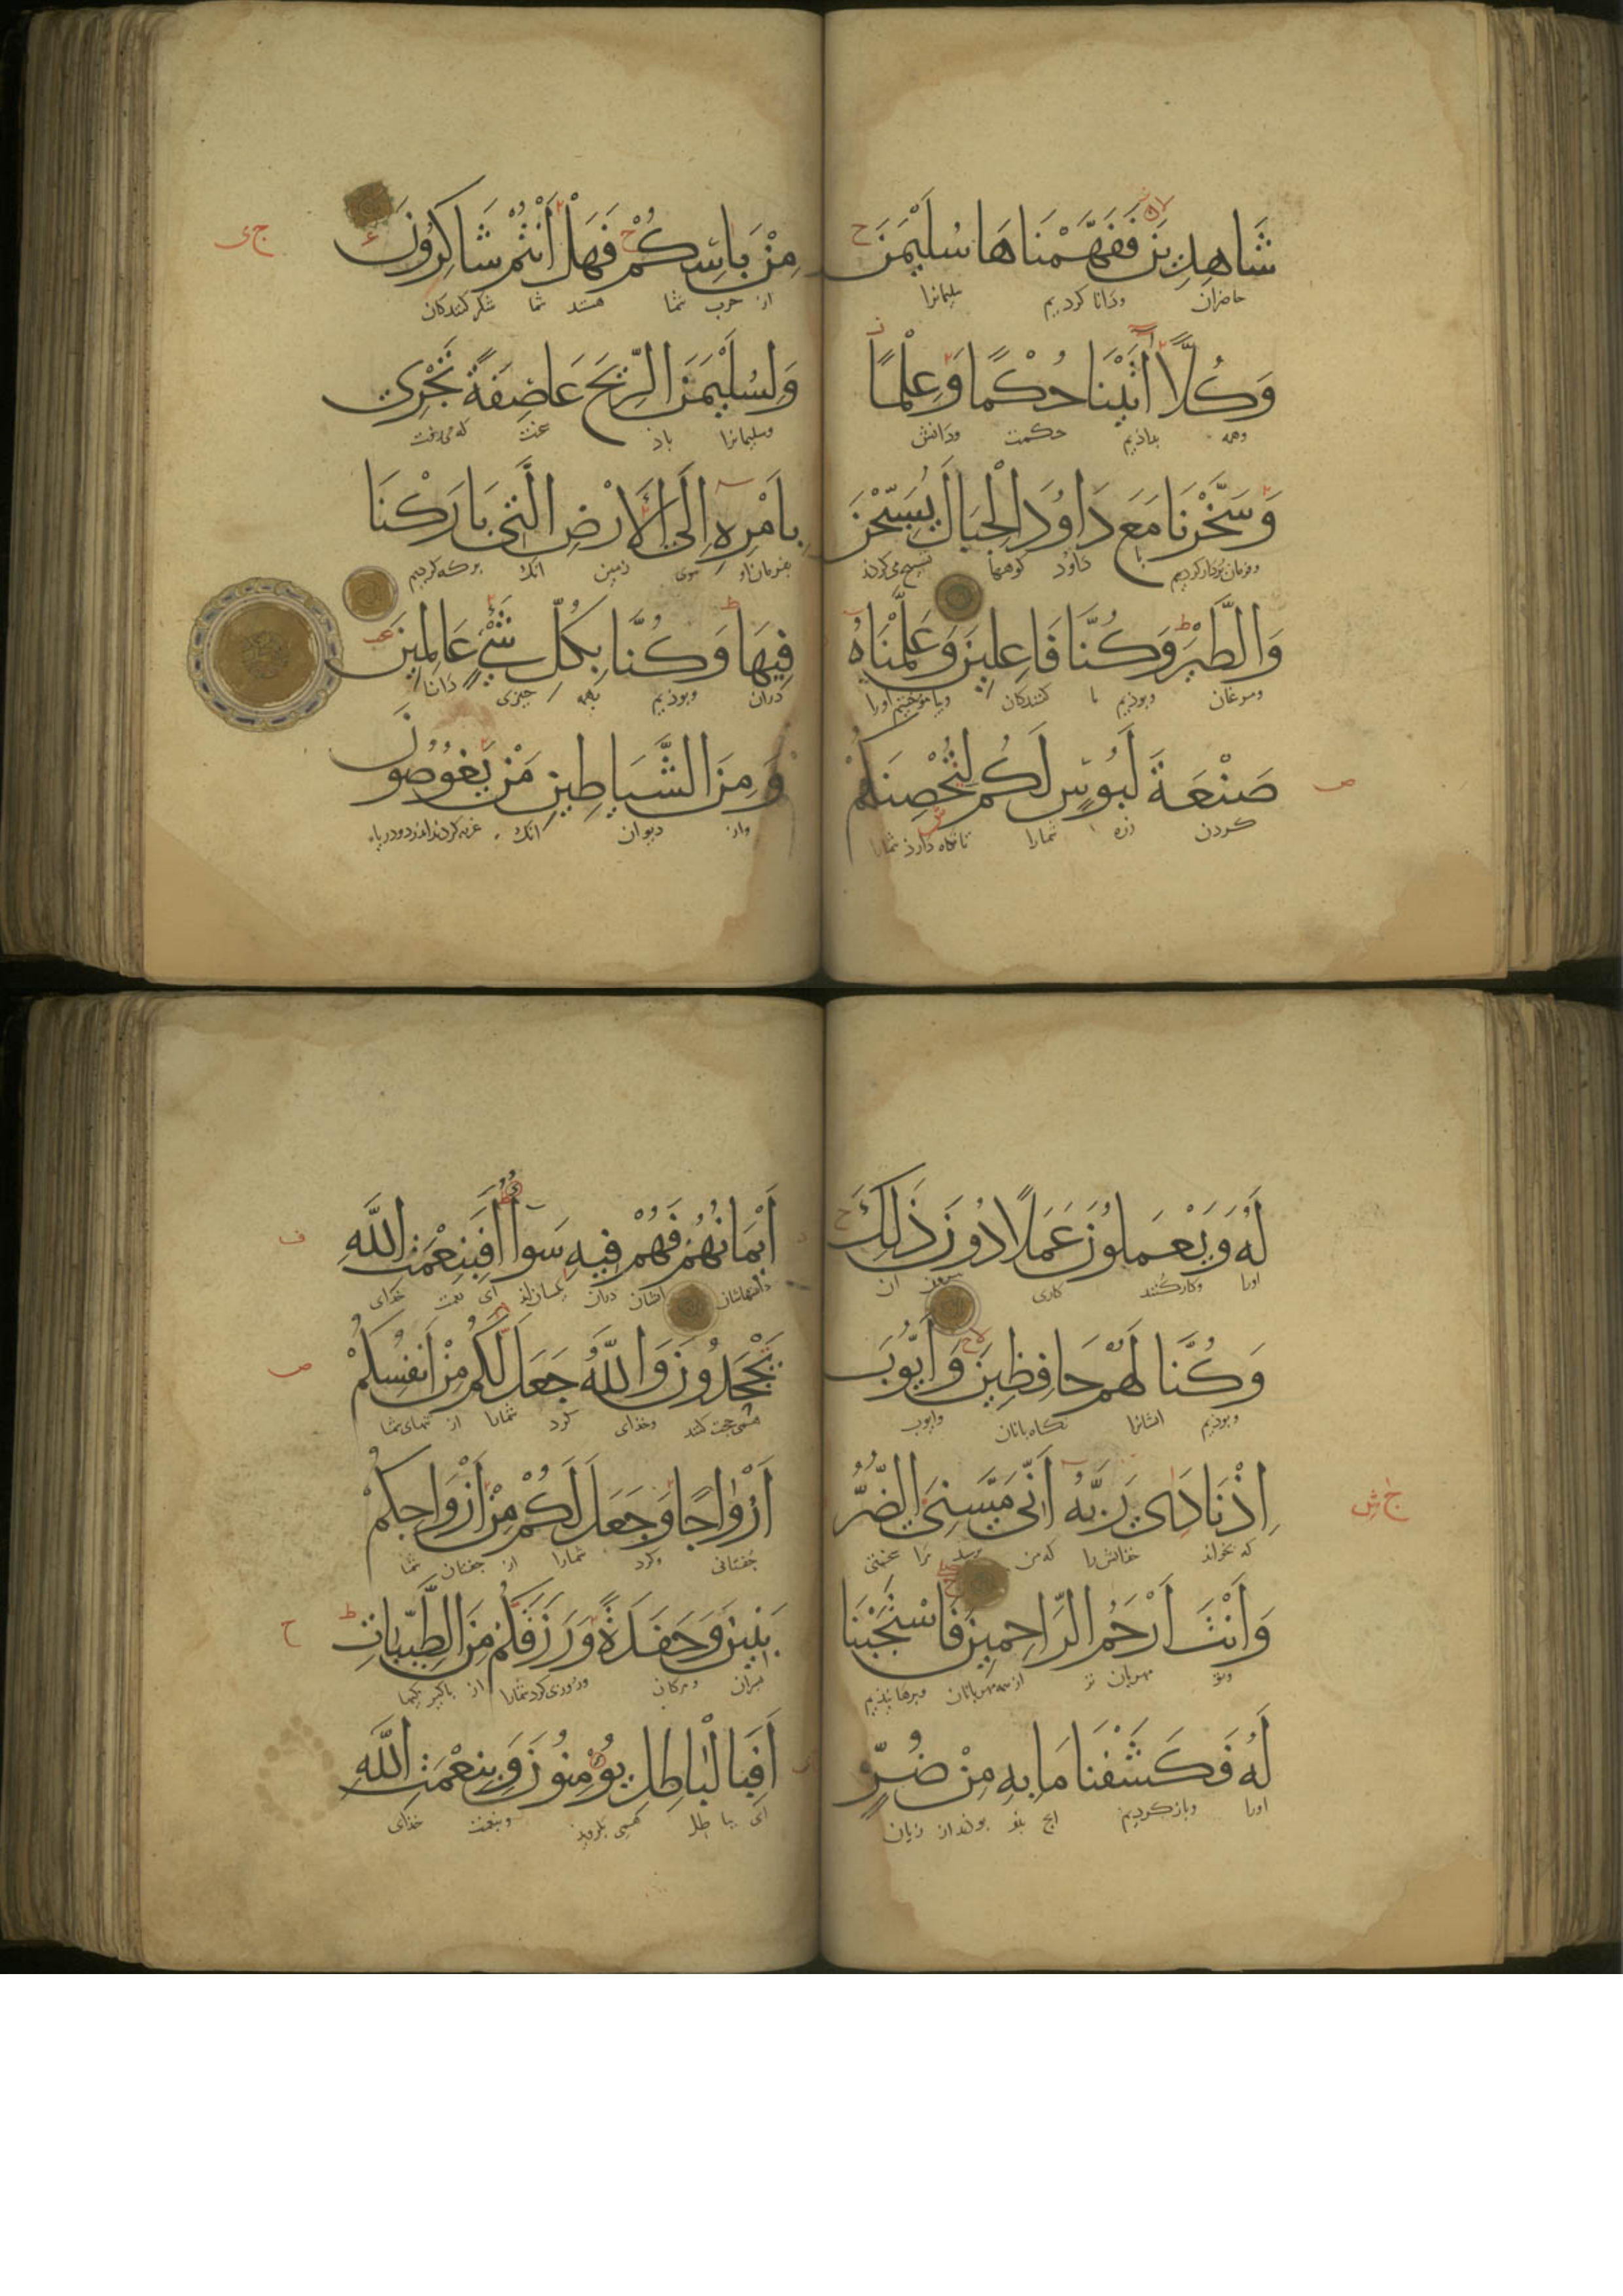 شَاهِدِينَ فَفَهَّمْنَاهَا سُلَيْمٰنَ
حاضران ودانا کردیم سلیمانرا
وَكُلًّا اٰتَيْنَا حُكْمًا وَعِلْمًا
وهمه بداذیم حکمت ودانش
وَسَخَّرْنَا مَعَ دَاوُدَ الْجِبَالَ يُسَبِّحْنَ
وفرمان بردار کردیم با داود کوهها تسبیح می کردند
وَالطَّيْرَ وَكُنَّا فَاعِلِينَ وَعَلَّمْنَاهُ
ومرغان وبوذیم ما کنندکان وبیاموختیم اورا
صَنْعَةَ لَبُوسٍ لَكُمْ لِتُحْصِنَكُمْ
کردن زره شمارا تا نگاه دارذ شمارا
مِنْ بَاْسِكُمْ فَهَلْ اَنْتُمْ شَاكِرُونَ
از حرب شما هستند شما شکر کنندکان
وَلِسُلَيْمٰنَ الرِّيحَ عَاصِفَةً تَجْرِي
وسلیمانرا باذ که می رفت
بِاَمْرِهِ اِلَى الْاَرْضِ الَّتِي بَارَكْنَا
بفرمان او سوی زمین انک برکه کردیم
فِيهَا وَكُنَّا بِكُلِّ شَيْءٍ عَالِمِينَ
دران وبوذیم بهمه چیزی دانا
وَمِنَ الشَّيَاطِينِ مَنْ يَغُوصُونَ
واز دیوان انک
لَهُ وَيَعْمَلُونَ عَمَلًا دُونَ ذٰلِكَ
اورا وکار کنند کاری بیرون ان
وَكُنَّا لَهُمْ حَافِظِينَ وَاَيُّوبَ
وبوذیم ایشانرا نکاه بانان وایوب
اِذْ نَادٰى رَبَّهُ اَنِّي مَسَّنِيَ الضُّرُّ
که بخواند خدایش را که من برسید مرا
وَاَنْتَ اَرْحَمُ الرَّاحِمِينَ فَاسْتَجَبْنَا
وتو مهربان تر از همه مهربانان
لَهُ فَكَشَفْنَا مَا بِهِ مِنْ ضُرٍّ
اورا وباز کردیم انچ بذو بوذ از زیان
اَيْمَانُهُمْ فَهُمْ فِيهِ سَوَاءٌ اَفَبِنِعْمَتِ اللّٰهِ
ایشان دران یکسان اند ای نعمت خذای
يَجْحَدُونَ وَاللّٰهُ جَعَلَ لَكُمْ مِنْ اَنْفُسِكُمْ
وخذای کرد شمارا از تنهای شما
اَزْوَاجًا وَجَعَلَ لَكُمْ مِنْ اَزْوَاجِكُمْ
جفتانی وکرد شمارا از جفتان شما
بَنِينَ وَحَفَدَةً وَرَزَقَكُمْ مِنَ الطَّيِّبَاتِ
وروزی کرد شمارا از پاکیزکیها
اَفَبِالْبَاطِلِ يُؤْمِنُونَ وَبِنِعْمَتِ اللّٰهِ
ای بباطل وبنعمت خذای